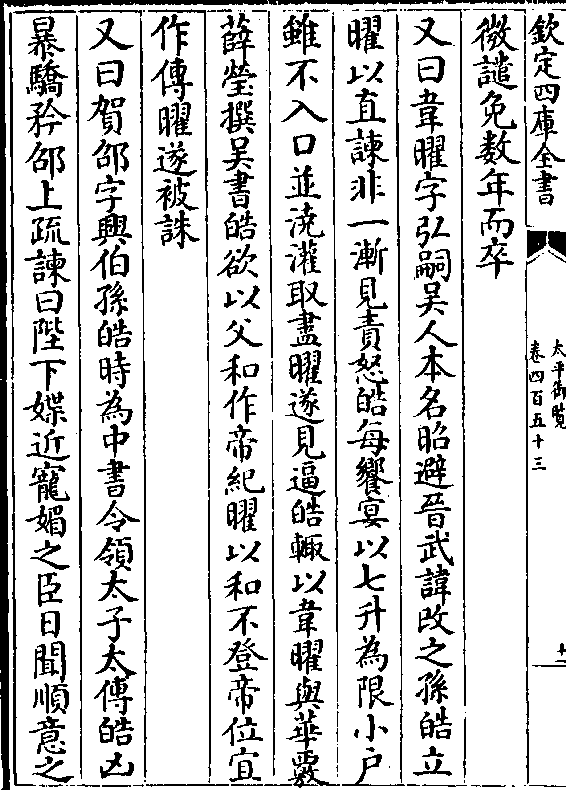 欽定四庫全書
太平御覽
卷四百五十三
十二
微譴免數年而卒
又曰韋曜字弘嗣吳人本名昭避晉武諱改之孫皓立
曜以直諫非一漸見責怒皓每饗宴以七升為限小户
雖不入口並澆灌取盡曜遂見逼皓輙以韋曜與華覈
薛瑩撰吴書皓欲以父和作帝紀曜以和不登帝位宜
作傳曜遂被誅
又曰賀邵字興伯孫皓時為中書令領太子太傅皓凶
暴驕矜邵上疏諫曰陛下媟近寵媚之臣日聞順意之